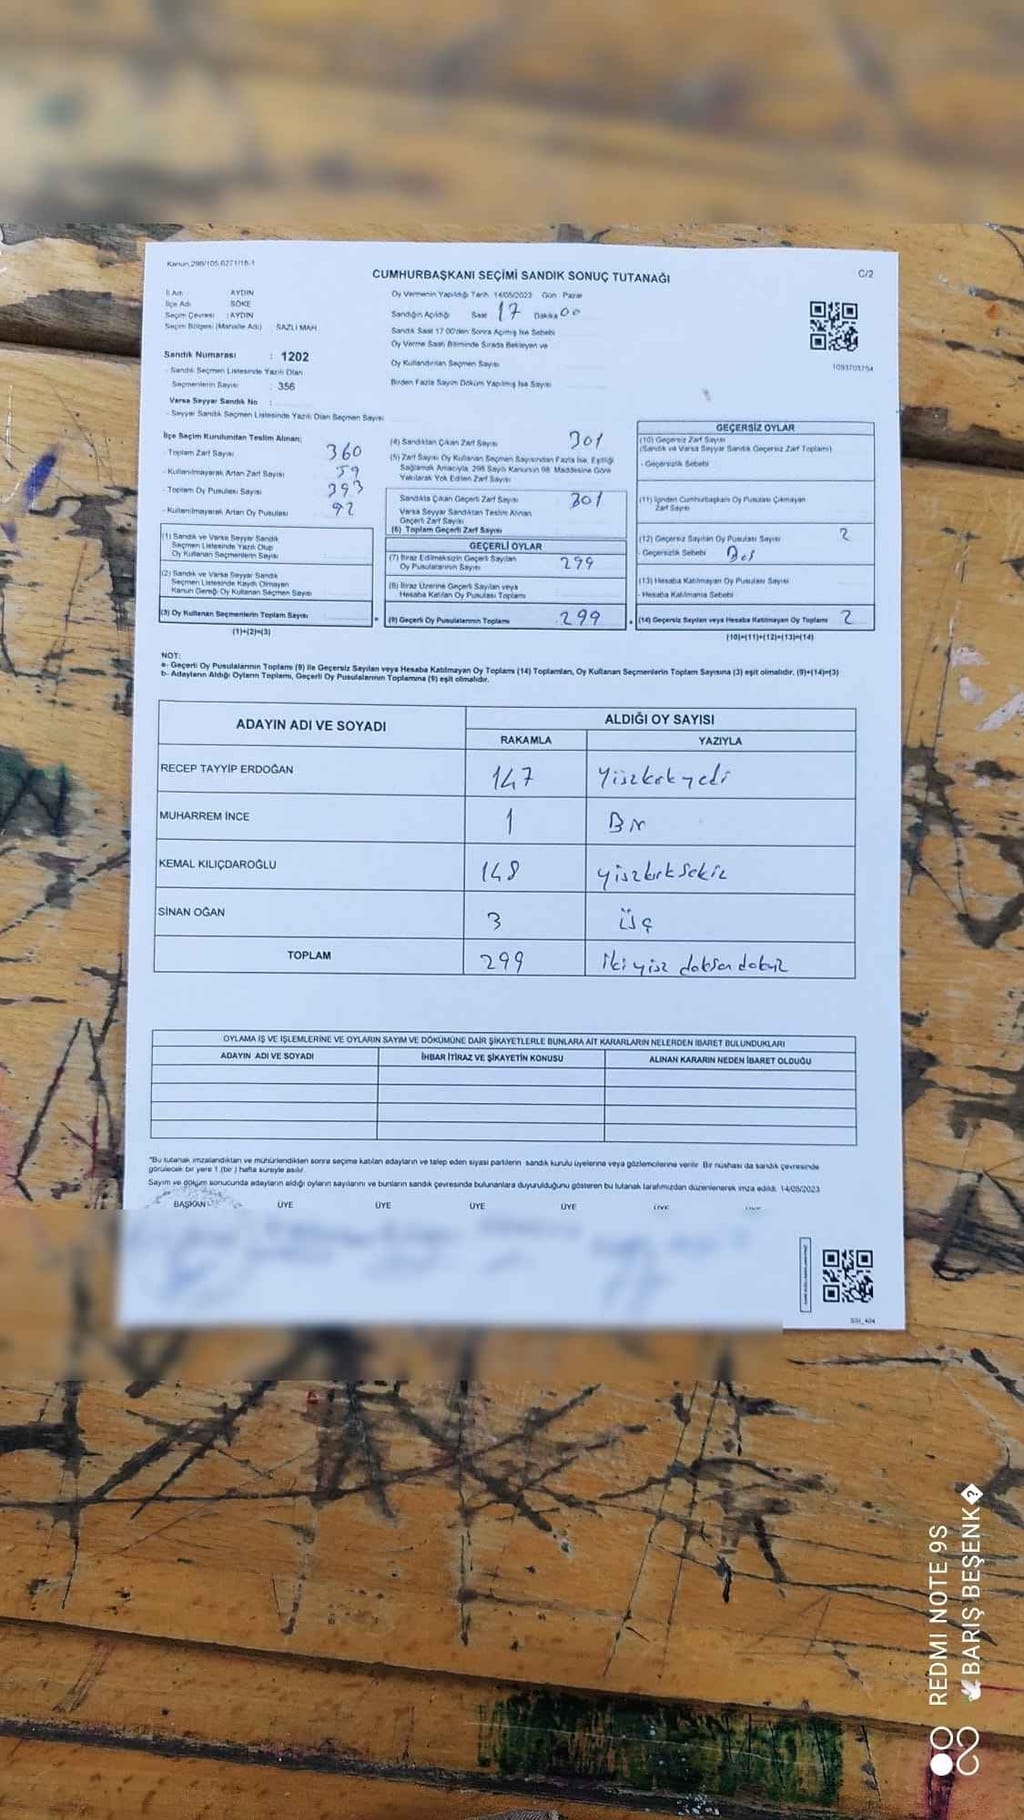 Kanun:298/105,6271/18-1
CUMHURBAŞKANI SEÇİMİ SANDIK SONUÇ TUTANAĞI
C/2
İl Adı : AYDIN
İlçe Adı : SÖKE
Seçim Çevresi : AYDIN
Seçim Bölgesi (Mahalle Adı) SAZLI MAH.
Oy Vermenin Yapıldığı Tarih 14/05/2023 Gün Pazar
Sandığın Açıldığı Saat 17 Dakika 00
Sandık Saat 17:00'den Sonra Açılmış İse Sebebi
Oy Verme Saati Bitiminde Sırada Bekleyen ve
Oy Kullandırılan Seçmen Sayısı
Birden Fazla Sayım Döküm Yapılmış İse Sayısı
1093703754
Sandık Numarası : 1202
- Sandık Seçmen Listesinde Yazılı Olan
Seçmenlerin Sayısı : 356
Varsa Seyyar Sandık No :
- Seyyar Sandık Seçmen Listesinde Yazılı Olan Seçmen Sayısı
İlçe Seçim Kurulundan Teslim Alınan;
- Toplam Zarf Sayısı 360
- Kullanılmayarak Artan Zarf Sayısı 59
- Toplam Oy Pusulası Sayısı 393
- Kullanılmayarak Artan Oy Pusulası 92
(1) Sandık ve Varsa Seyyar Sandık
Seçmen Listesinde Yazılı Olup
Oy Kullanan Seçmenlerin Sayısı
(2) Sandık ve Varsa Seyyar Sandık
Seçmen Listesinde Kayıtlı Olmayan
Kanun Gereği Oy Kullanan Seçmen Sayısı
(3) Oy Kullanan Seçmenlerin Toplam Sayısı
(1)+(2)=(3)
(4) Sandıktan Çıkan Zarf Sayısı 301
(5) Zarf Sayısı Oy Kullanan Seçmen Sayısından Fazla İse, Eşitliği
Sağlamak Amacıyla, 298 Sayılı Kanunun 98. Maddesine Göre
Yakılarak Yok Edilen Zarf Sayısı
Sandıkta Çıkan Geçerli Zarf Sayısı 301
Varsa Seyyar Sandıktan Teslim Alınan
Geçerli Zarf Sayısı
(6) Toplam Geçerli Zarf Sayısı
GEÇERLİ OYLAR
(7) İtiraz Edilmeksizin Geçerli Sayılan
Oy Pusulalarının Sayısı 299
(8) İtiraz Üzerine Geçerli Sayılan veya
Hesaba Katılan Oy Pusulası Toplamı
(9) Geçerli Oy Pusulalarının Toplamı 299
GEÇERSİZ OYLAR
(10) Geçersiz Zarf Sayısı
(Sandık ve Varsa Seyyar Sandık Geçersiz Zarf Toplamı)
- Geçersizlik Sebebi
(11) İçinden Cumhurbaşkanı Oy Pusulası Çıkmayan
Zarf Sayısı
(12) Geçersiz Sayılan Oy Pusulası Sayısı 2
- Geçersizlik Sebebi Boş
(13) Hesaba Katılmayan Oy Pusulası Sayısı
- Hesaba Katılmama Sebebi
(14) Geçersiz Sayılan veya Hesaba Katılmayan Oy Toplamı 2
(10)+(11)+(12)+(13)=(14)
NOT:
a- Geçerli Oy Pusulalarının Toplamı (9) ile Geçersiz Sayılan veya Hesaba Katılmayan Oy Toplamı (14) Toplamları, Oy Kullanan Seçmenlerin Toplam Sayısına (3) eşit olmalıdır. (9)+(14)=(3)
b- Adayların Aldığı Oyların Toplamı, Geçerli Oy Pusulalarının Toplamına (9) eşit olmalıdır.
ADAYIN ADI VE SOYADI ALDIĞI OY SAYISI
RAKAMLA YAZIYLA
RECEP TAYYİP ERDOĞAN 147 yüzkırkyedi
MUHARREM İNCE 1 Bir
KEMAL KILIÇDAROĞLU 148 yüzkırksekiz
SİNAN OĞAN 3 üç
TOPLAM 299 ikiyüz doksan dokuz
OYLAMA İŞ VE İŞLEMLERİNE VE OYLARIN SAYIM VE DÖKÜMÜNE DAİR ŞİKAYETLERLE BUNLARA AİT KARARLARIN NELERDEN İBARET BULUNDUKLARI
ADAYIN ADI VE SOYADI İHBAR İTİRAZ VE ŞİKAYETİN KONUSU ALINAN KARARIN NEDEN İBARET OLDUĞU
"Bu tutanak imzalandıktan ve mühürlendikten sonra seçime katılan adayların ve talep eden siyasi partilerin sandık kurulu üyelerine veya gözlemcilerine verilir. Bir nüshası da sandık çevresinde
görülecek bir yere 1 (bir) hafta süreyle asılır.
Sayım ve döküm sonucunda adayların aldığı oyların sayılarını ve bunların sandık çevresinde bulunanlara duyurulduğunu gösteren bu tutanak tarafımızdan düzenlenerek imza edildi. 14/05/2023
BAŞKAN ÜYE ÜYE ÜYE ÜYE ÜYE ÜYE
REDMI NOTE 9S
BARIŞ BEŞENK